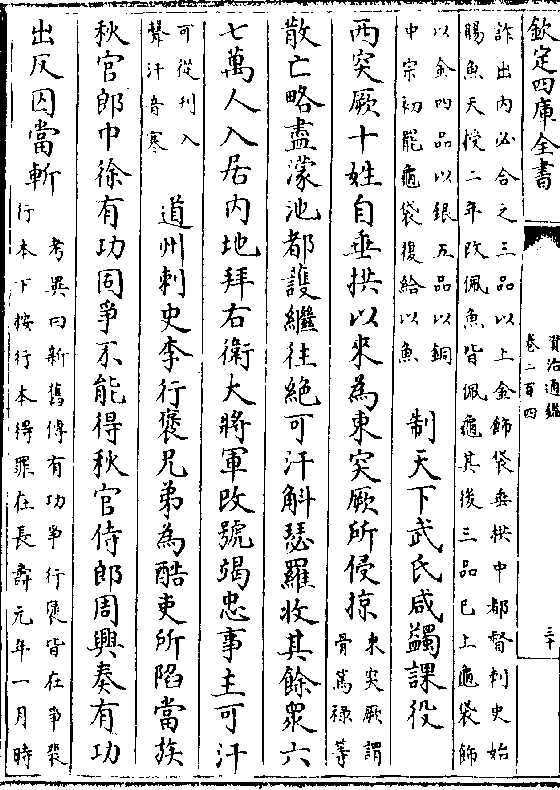 欽定四庫全書
資治通鑑
卷二百四
三十
詐出內必合之三品以上金飾袋垂拱中都督刺史始
賜魚天授二年改佩魚皆佩龜其後三品已上龜袋飾
以金四品以銀五品以銅
中宗初罷龜袋復給以魚
制天下武氏咸蠲課役
西突厥十姓自垂拱以來為東突厥所侵掠
東突厥謂
骨篤祿等
散亡略盡濛池都護繼往絕可汗斛瑟羅收其餘衆六
七萬人入居內地拜右衛大將軍改號竭忠事主可汗
可從刋入
聲汗音寒
道州刺史李行褒兄弟為酷吏所陷當族
秋官郎中徐有功固爭不能得秋官侍郎周興奏有功
出反囚當斬
考異曰新舊傳有功爭行褒皆在爭裴
行本下按行本得罪在長壽元年一月時